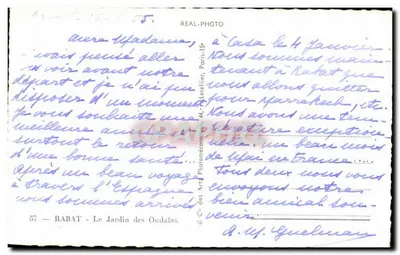 REAL-PHOTO
Madame,
vais pensé aller
voir avant notre
départ et je n'ai pu
disposer d'un moment
Je vous souhaite une
meilleure
surtout le retour
d'une bonne santé..
Après un beau voyage
à travers l'Espagne
nous sommes arrivés
à Casa le 4 Janvier
Nous sommes main
tenant à Rabat que
nous allons quitter
pour Marrakech, etc.
Nous avons une tem
pérature exception
nelle, un beau mois
de Mai en France....
Tous deux nous vous
envoyons notre
bien amical sou-
venir
57 - RABAT - Le Jardin des Oudaïas